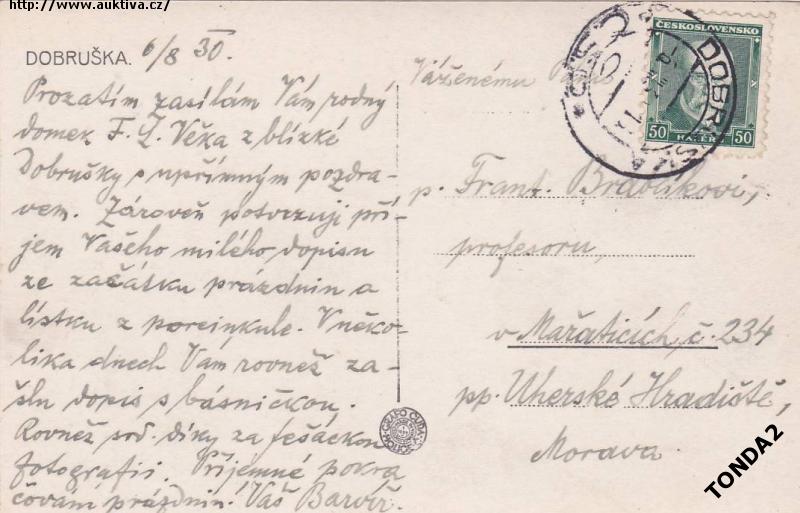 http://www.auktiva.cz/
DOBRUŠKA. 6/8 30.
Prozatím zasílám Vám rodný
domek F. L. Věka z blízké
Dobrušky s upřímným pozdra-
vem. Zároveň potvrzuji pří-
jem Vašeho milého dopisu
ze začátku prázdnin a
lístku z porcinkule. V něko-
lika dnech Vám rovněž za-
šlu dopis s básničkou.
Rovněž srd. díky za fešáckou
fotografii. Příjemné pokra
čování prázdnin! Váš
GRAFO ČUDA
ČESKOSLOVENSKO
50 HALÉŘŮ 50
DOBRUŠKA
Váženému
p. Frant.
profesoru,
v Mařaticích, č. 234
pp. Uherské Hradiště,
Morava.
TONDA2